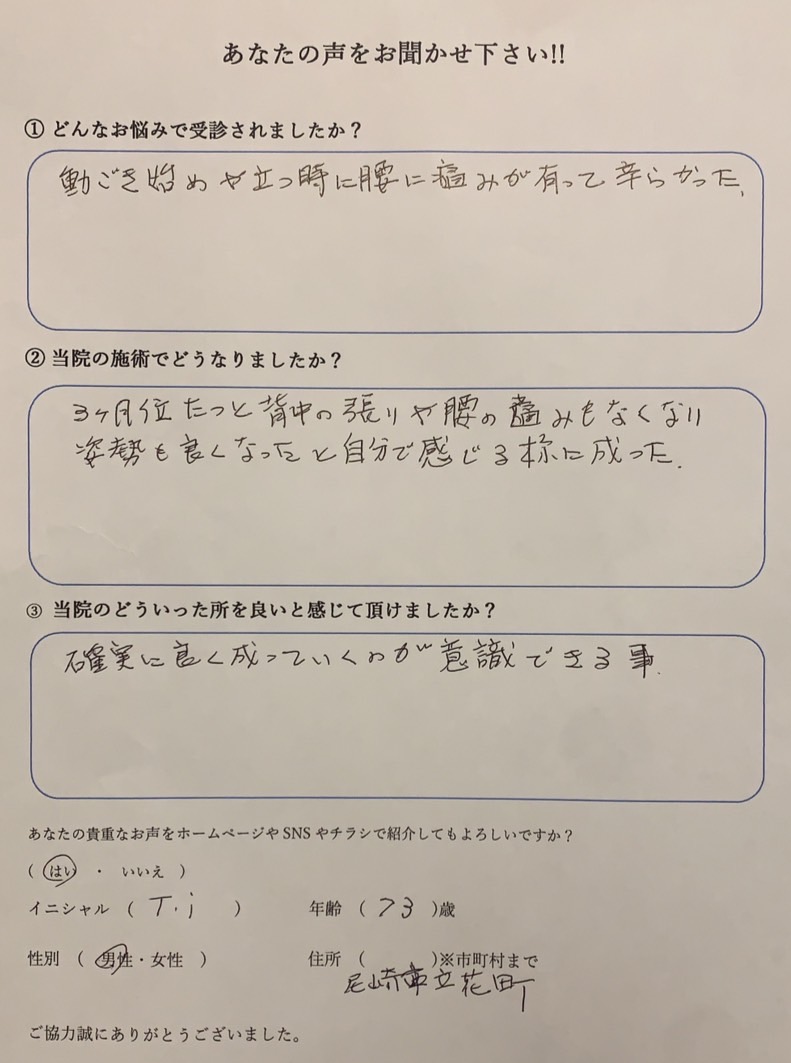 あなたの声をお聞かせ下さい!!
① どんなお悩みで受診されましたか？
動ごき始めや立つ時に腰に痛みが有って辛らかった、
② 当院の施術でどうなりましたか？
3ヶ月位たつと背中の張りや腰の痛みもなくなり
姿勢も良くなったと自分で感じる様に成った.
③ 当院のどういった所を良いと感じて頂けましたか？
確実に良く成っていくのが意識できる事.
あなたの貴重なお声をホームページやSNSやチラシで紹介してもよろしいですか？
（ はい ・ いいえ ）
イニシャル （ T.i ） 年齢 （ 73 ）歳
性別 （ 男性・女性 ） 住所 （ ）※市町村まで
尼崎市立花町
ご協力誠にありがとうございました。